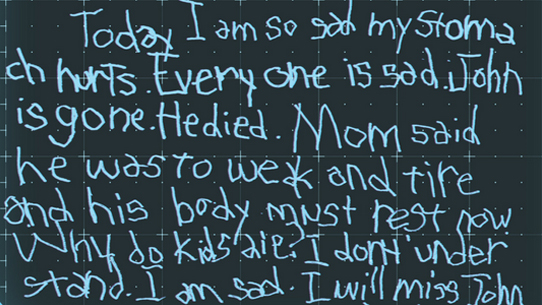 Today I am so sad my stoma
ch hurts. Every one is sad. John
is gone. He died. Mom said
he was to weak and tire
and his body must rest now
Why do kids die? I dont under
stand. I am sad. I will miss John